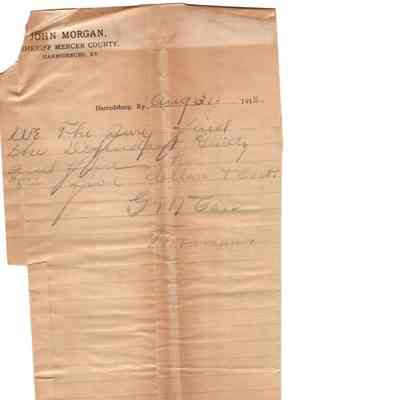 JOHN MORGAN,
SHERIFF MERCER COUNTY,
HARRODSBURG, KY.
Harrodsburg, Ky., Aug 31 191
WE The jury find
the Defendant Guilty
and fine him
five dollars & Costs